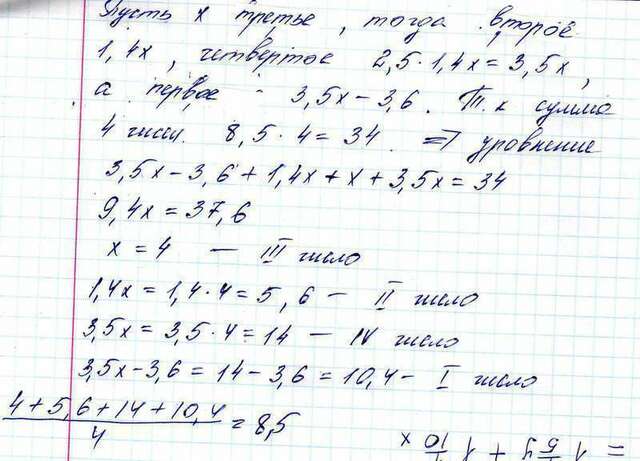 Пусть x третье, тогда второе
1,4x, четвертое 2,5·1,4x=3,5x,
а первое - 3,5x-3,6. Т.к сумма
4 чисел 8,5·4=34 => уровнение
3,5x-3,6+1,4x+x+3,5x=34
9,4x=37,6
x=4 — III число
1,4x=1,4·4=5,6 — II число
3,5x=3,5·4=14 — IV число
3,5x-3,6=14-3,6=10,4 — I число
4+5,6+14+10,4/4=8,5